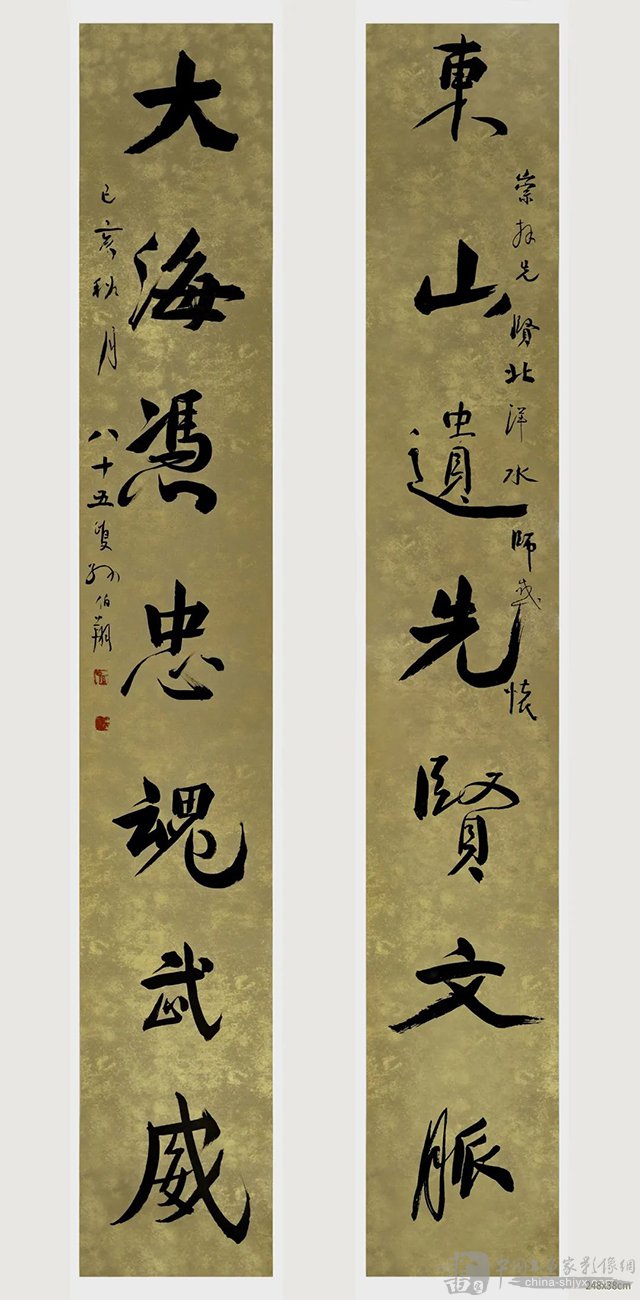 東山遺先賢文脈
崇拜先賢北洋水師感懷
大海憑忠魂武威
己亥秋月
八十五叟孫伯翔
china-shjyx
248x38cm